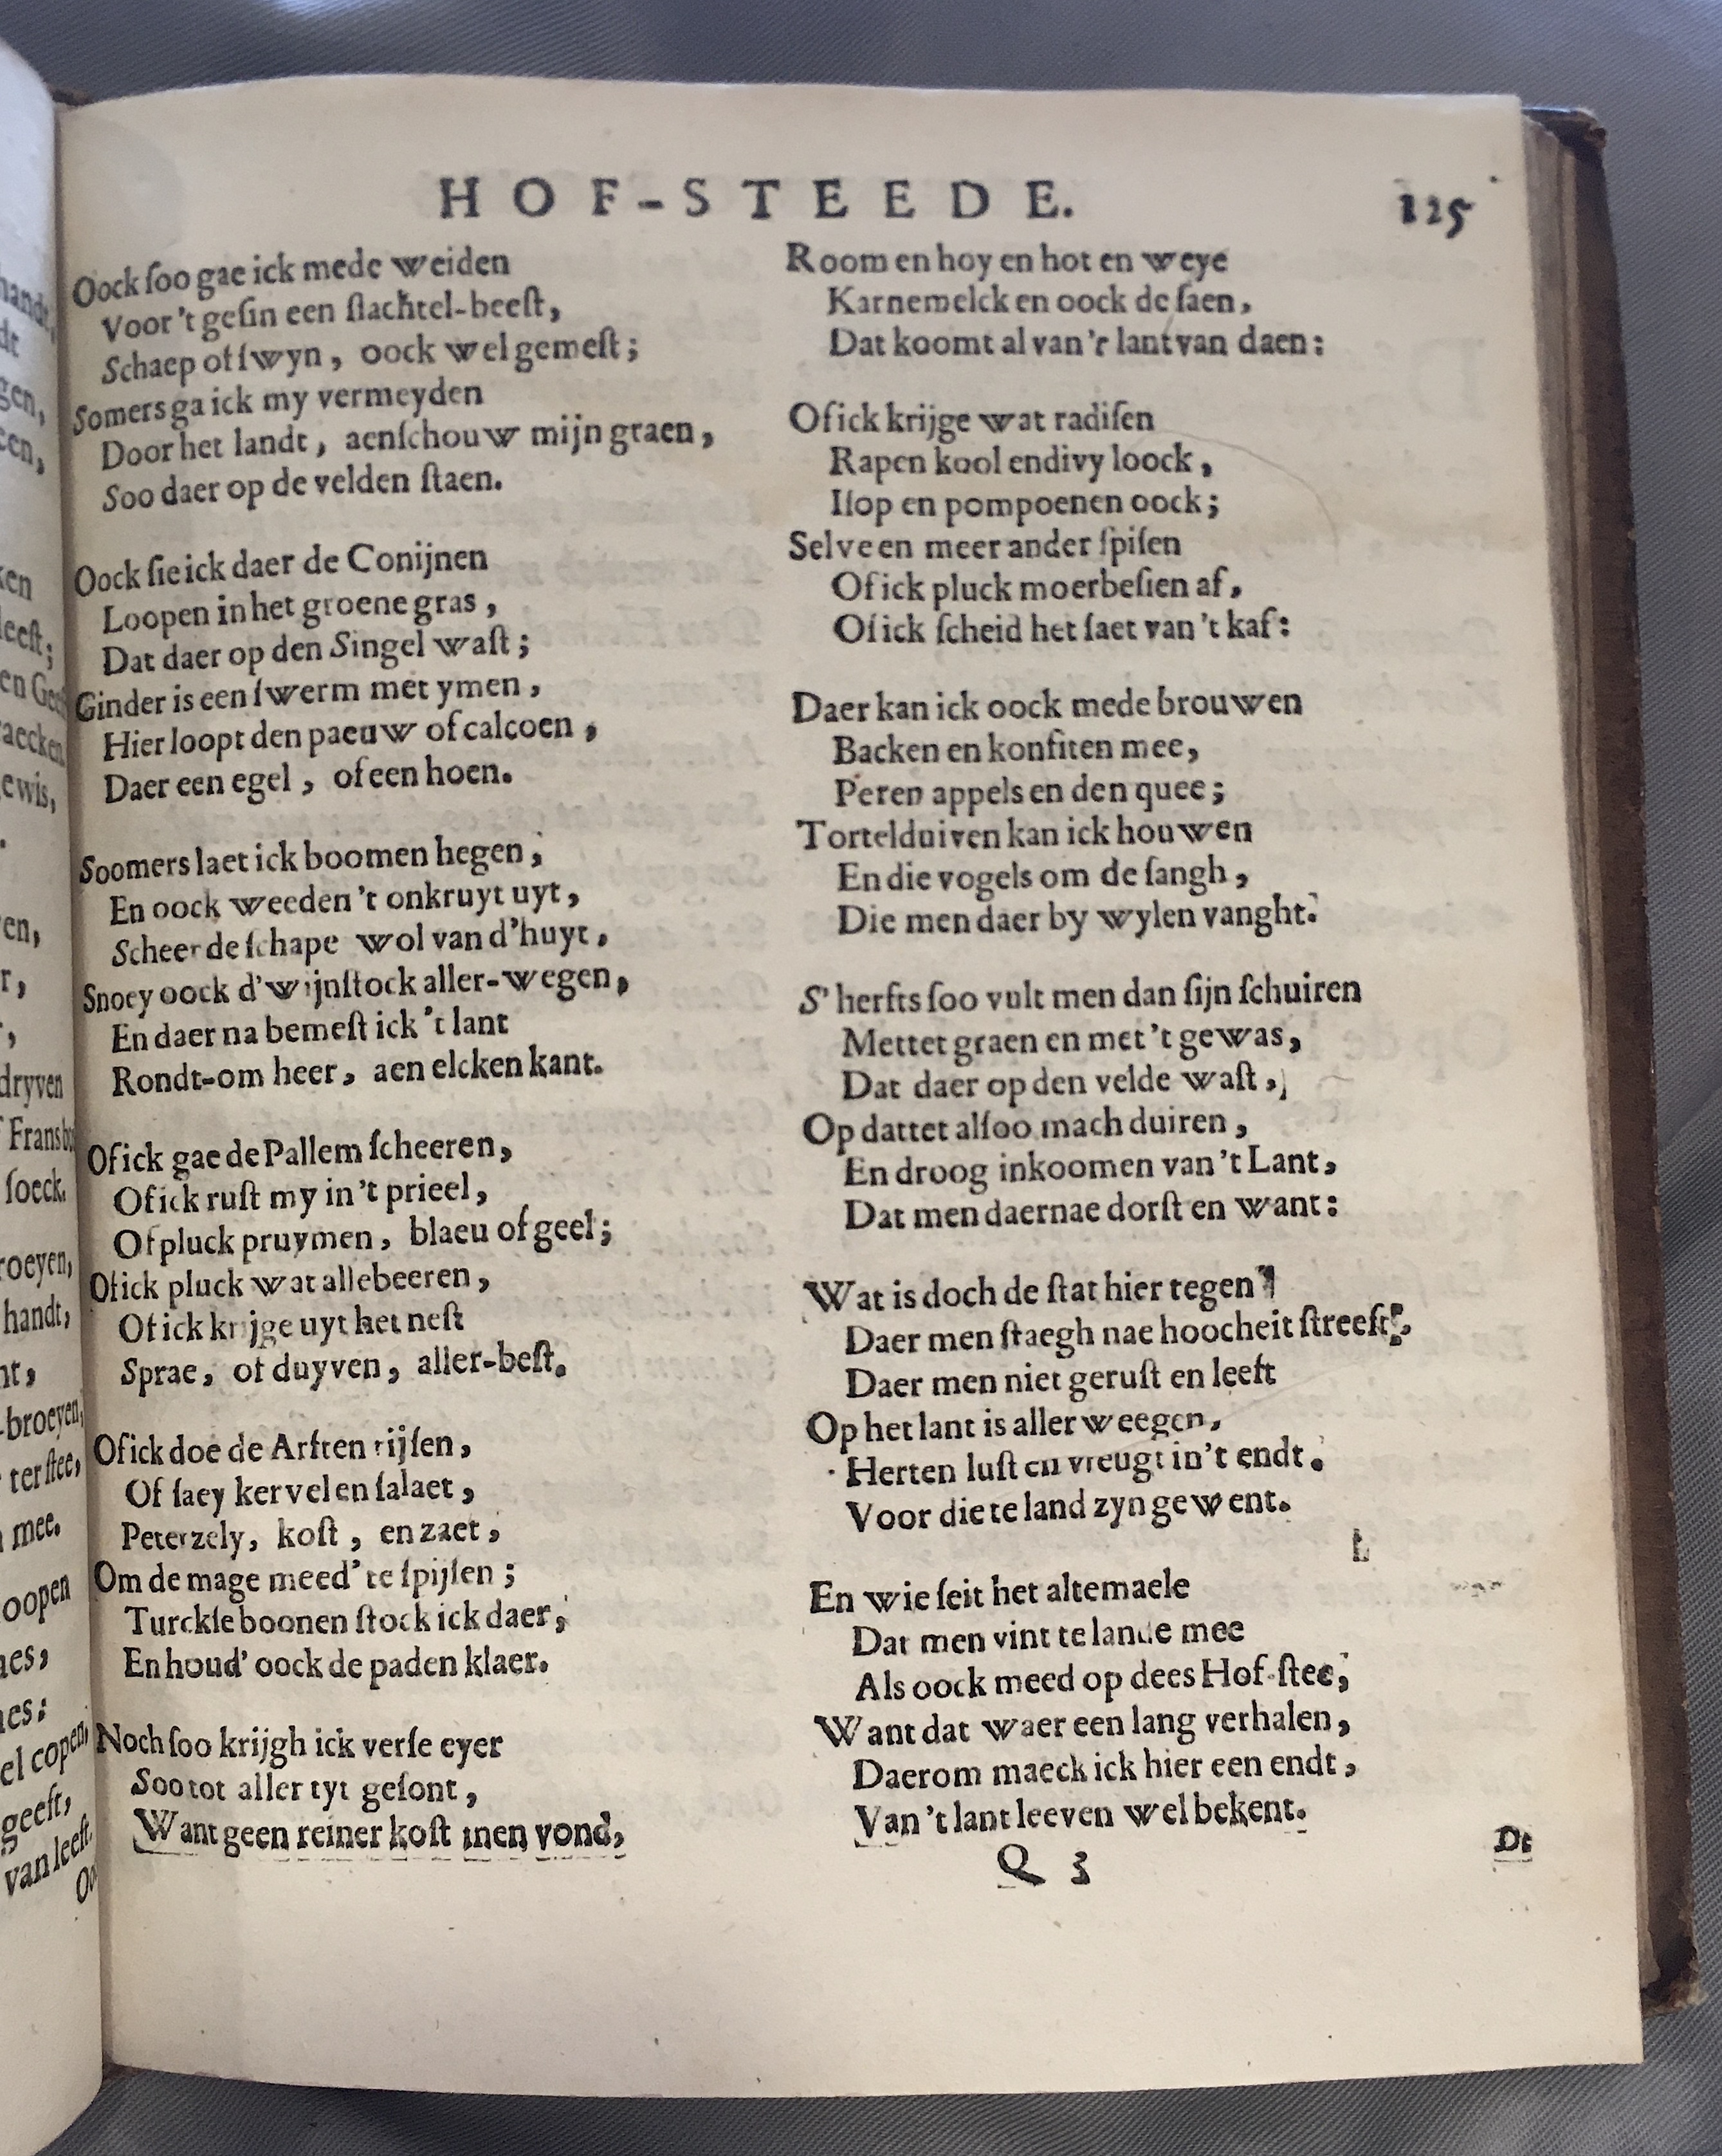 HOF-STEEDE.
125
Oock ſoo gae ick mede weiden
Voor 't geſin een ſlachtel-beeſt,
Schaep of ſwyn, oock wel gemeſt;
Somers ga ick my vermeyden
Door het landt, aenſchouw mijn graen,
Soo daer op de velden ſtaen.
Oock ſie ick daer de Conijnen
Loopen in het groene gras,
Dat daer op den Singel waſt;
Ginder is een ſwerm met ymen,
Hier loopt den paeuw of calcoen,
Daer een egel, of een hoen.
Soomers laet ick boomen hegen,
En oock weeden 't onkruyt uyt,
Scheer de ſchape wol van d'huyt,
Snoey oock d'wijnſtock aller-wegen,
En daer na bemeſt ick 't lant
Rondt-om heer, aen elcken kant.
Of ick gae de Pallem ſcheeren,
Of ick ruſt my in 't prieel,
Of pluck pruymen, blaeu of geel;
Of ick pluck wat allebeeren,
Of ick krijge uyt het neſt
Sprae, of duyven, aller-beſt.
Of ick doe de Arſten rijſen,
Of ſaey kervel en ſalaet,
Peterzely, koſt, en zaet,
Om de mage meed' te ſpijſen;
Turckſe boonen ſtock ick daer,
En houd' oock de paden klaer.
Noch ſoo krijgh ick verſe eyer
Soo tot aller tyt geſont,
Want geen reiner koſt men vond,
Room en hoy en hot en weye
Karnemelck en oock de ſaen,
Dat koomt al van 'r lant van daen:
Of ick krijge wat radiſen
Rapen kool endivy loock,
Iſop en pompoenen oock;
Selve en meer ander ſpiſen
Of ick pluck moerbeſien af,
Of ick ſcheid het ſaet van 't kaf:
Daer kan ick oock mede brouwen
Backen en konfiten mee,
Peren appels en den quee;
Tortelduiven kan ick houwen
En die vogels om de ſangh,
Die men daer by wylen vanght.
S' herfts ſoo vult men dan ſijn ſchuiren
Mettet graen en met 't gewas,
Dat daer op den velde waſt,
Op dattet alſoo mach duiren,
En droog inkoomen van 't Lant,
Dat men daernae dorſt en want:
Wat is doch de ſtat hier tegen
Daer men ſtaegh nae hoocheit ſtreeft,
Daer men niet geruſt en leeft
Op het lant is aller weegen,
Herten luſt en vreugt in 't endt.
Voor die te land zyn gewent.
En wie ſeit het altemaele
Dat men vint te lande mee
Als oock meed op dees Hof-ſtee;
Want dat waer een lang verhalen,
Daerom maeck ick hier een endt,
Van 't lant leeven wel bekent.
Q 3
De